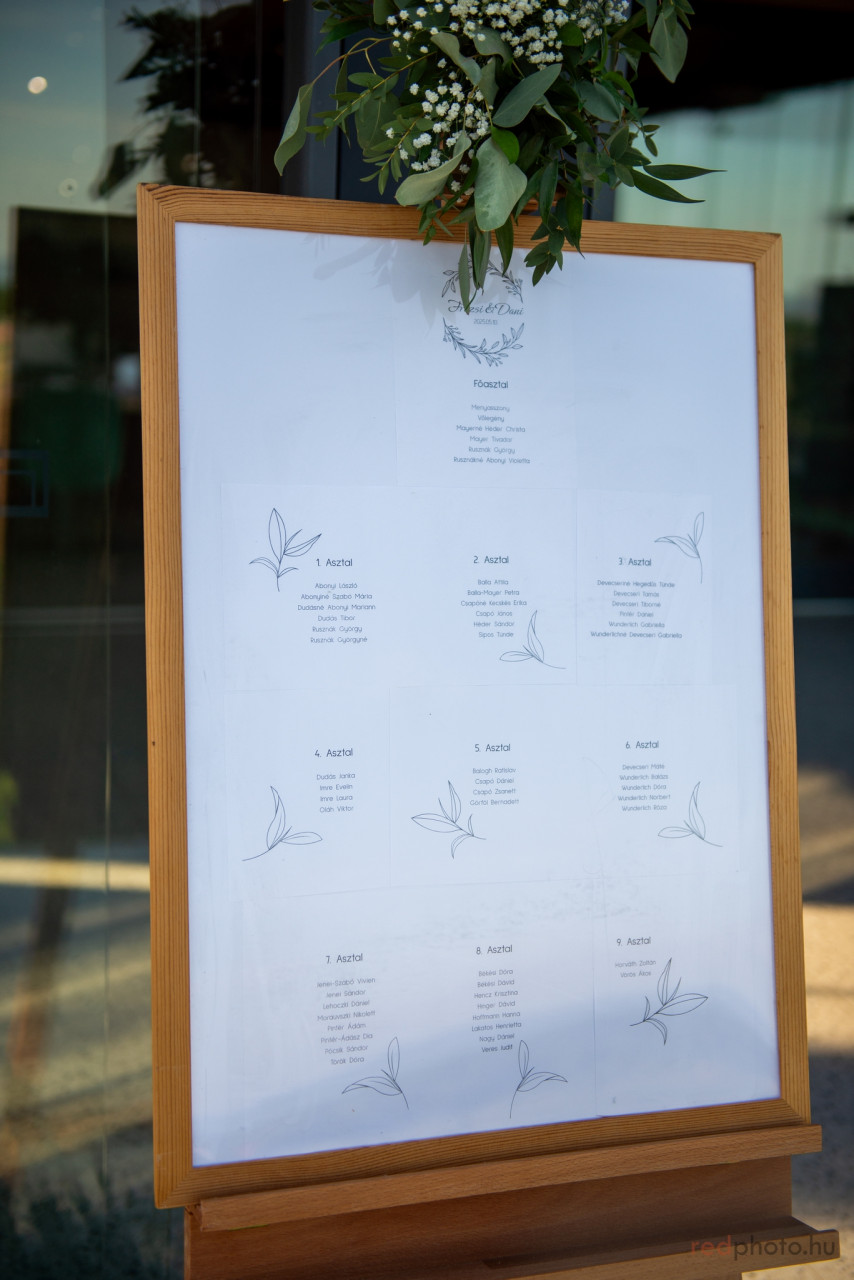 & Dani
Főasztal
Menyasszony
Vőlegény
Mayerné Héder Christa
Mayer Tivadar
Rusznák György
Rusznákné Abonyi Violetta
1. Asztal
Abonyi László
Abonyiné Szabó Mária
Dudásné Abonyi Mariann
Dudás Tibor
Rusznák György
Rusznák Györgyné
2. Asztal
Balla Attila
Balla-Mayer Petra
Csapóné Kecskés Erika
Csapó János
Héder Sándor
Sipos Tünde
3. Asztal
Devecseriné Hegedűs Tünde
Devecseri Tamás
Devecseri Tiborné
Pintér Dániel
Wunderlich Gabriella
Wunderlichné Devecseri Gabriella
4. Asztal
Dudás Janka
Imre Evelin
Imre Laura
Oláh Viktor
5. Asztal
Balogh
Csapó Dániel
Csapó Zsanett
Bernadett
6. Asztal
Devecseri Máté
Wunderlich Balázs
Wunderlich Dóra
Wunderlich Norbert
Wunderlich Róza
7. Asztal
Jenei-Szabó Vivien
Jenei Sándor
Lehoczki Dániel
Nikolett
Pintér Ádám
Pintér-Ádász Dia
Pócsik Sándor
Török Dóra
8. Asztal
Békési Dóra
Békési Dávid
Hencz Krisztina
Hinger Dávid
Hoffmann Hanna
Lakatos Henrietta
Nagy Dániel
Veres Judit
9. Asztal
Horváth Zoltán
Vörös Ákos
redphoto.hu